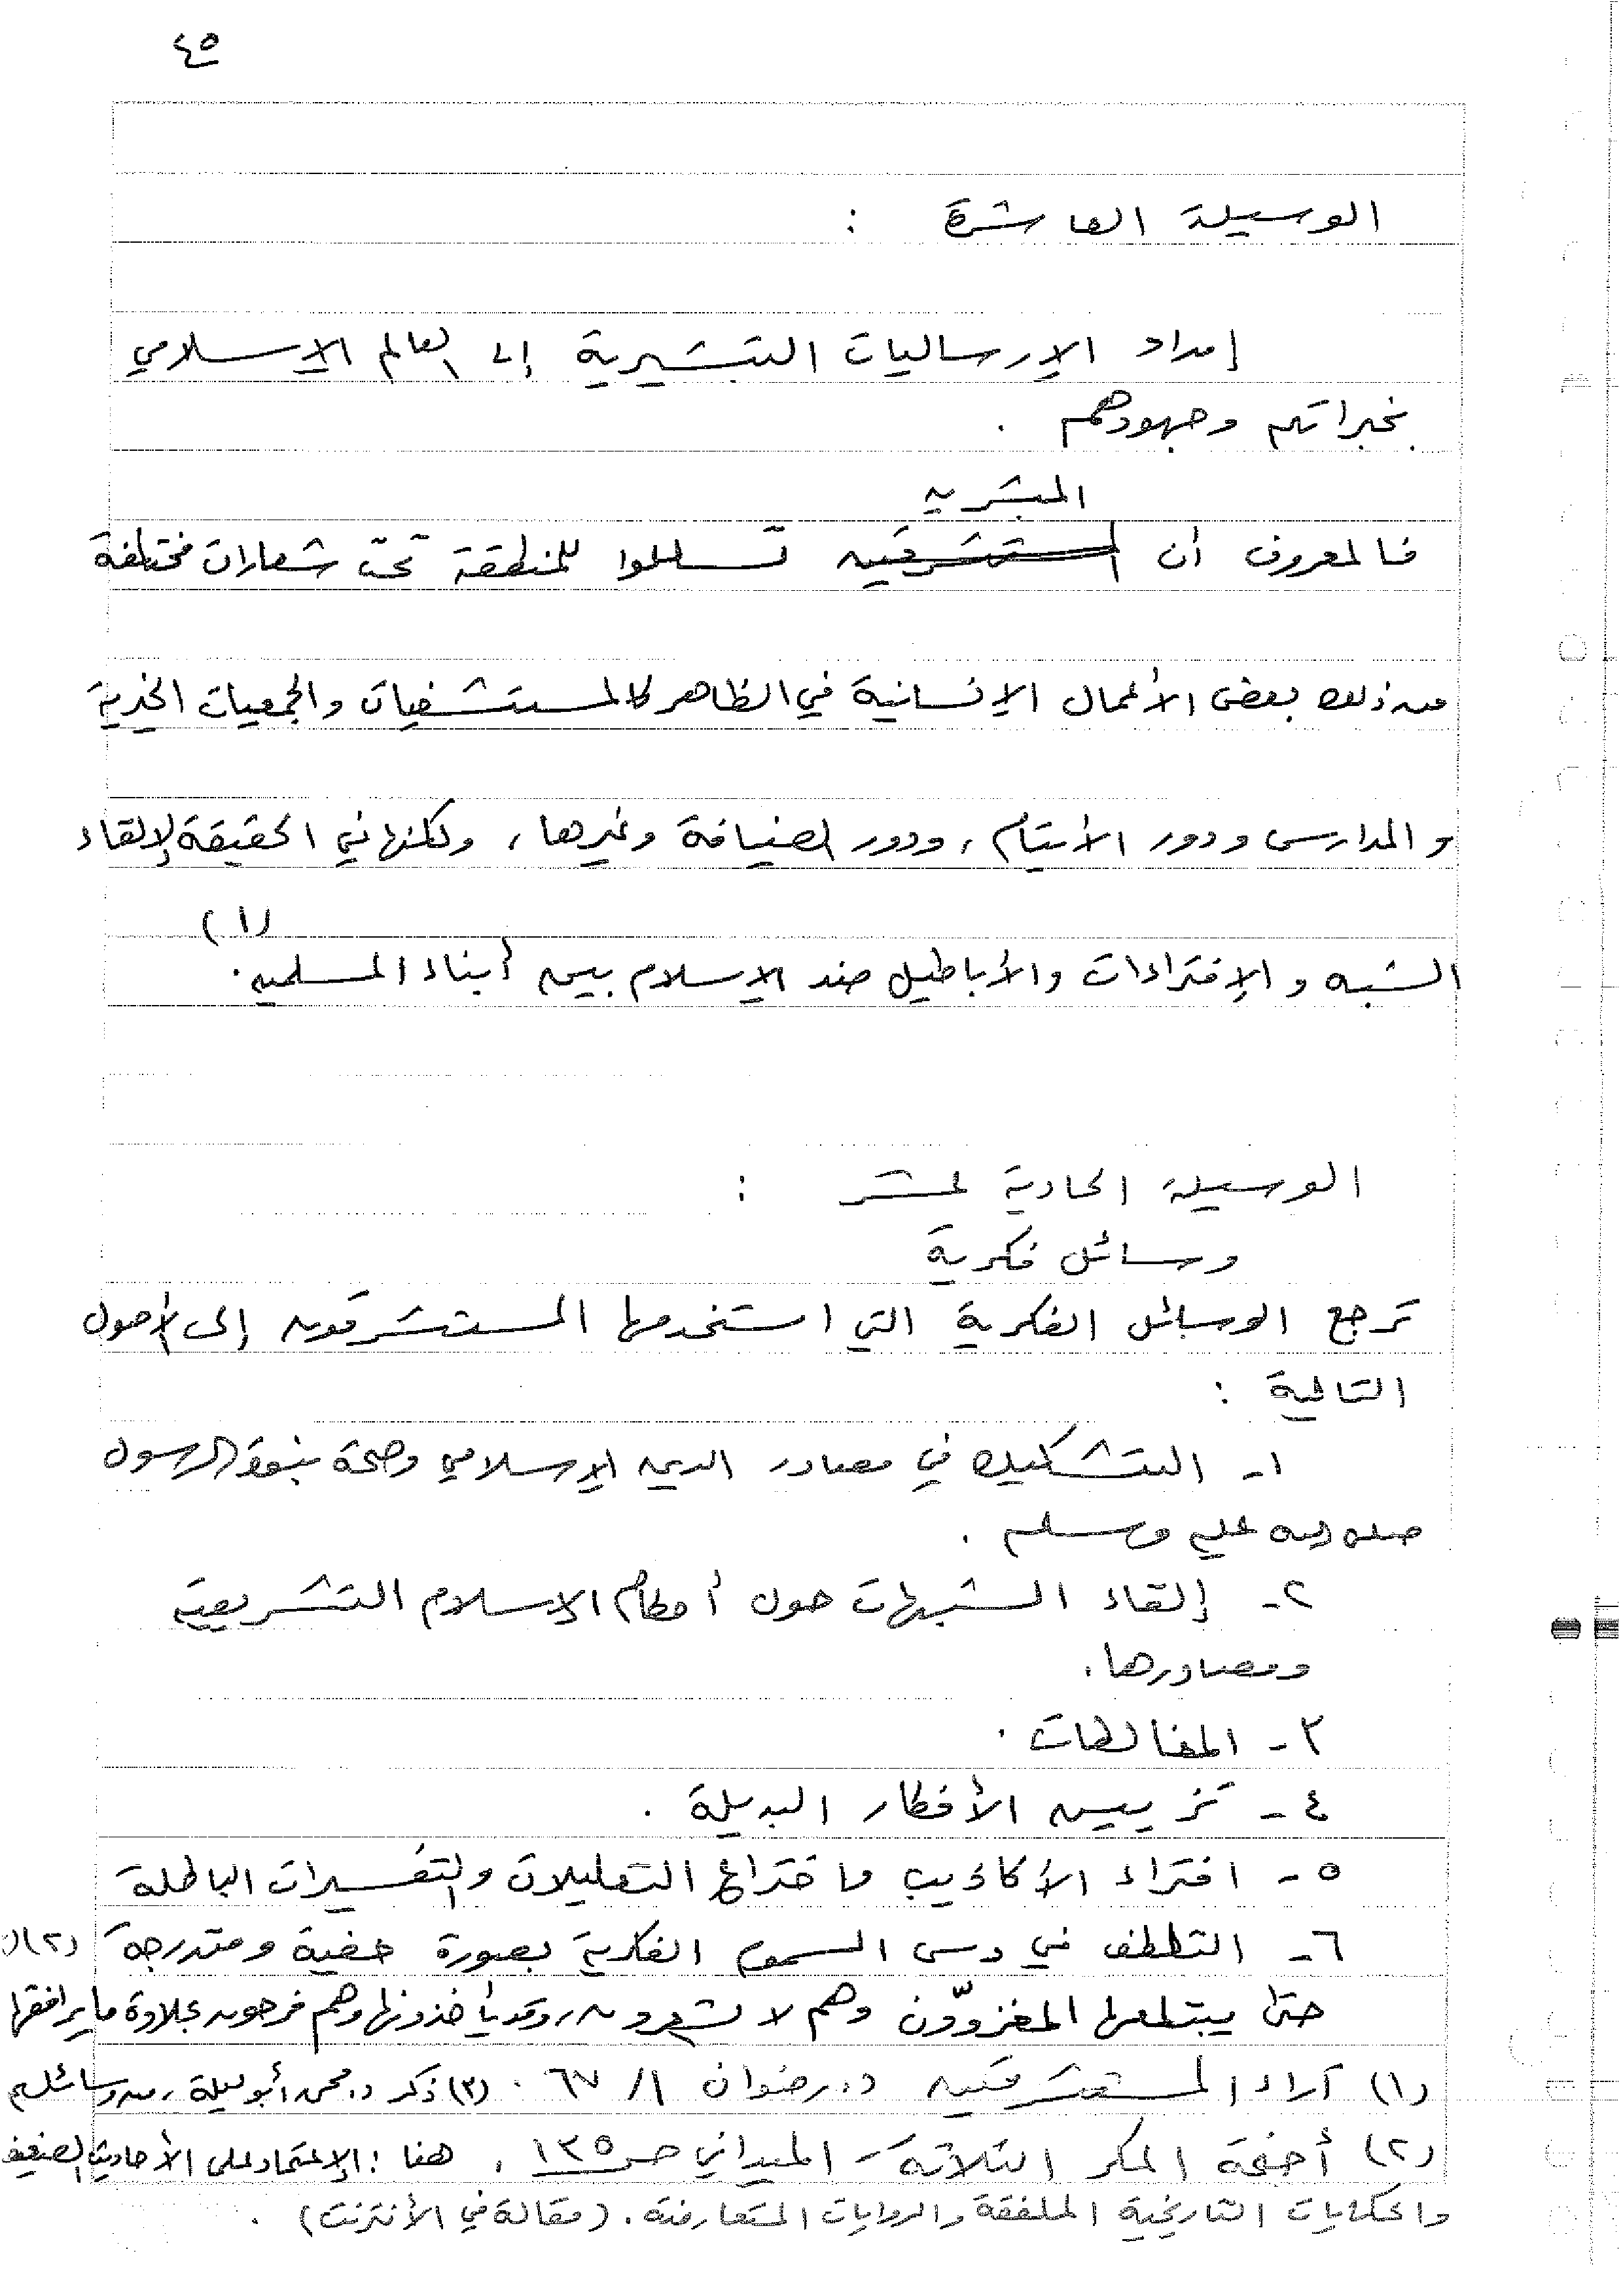 ٤٥
الوسيلة العاشرة :
إمداد الإرساليات التبشيرية إلى العالم الإسلامي
بخبراتهم وجهودهم .
المبشرين
فالمعروف أن المستشرقين تسللوا للمنطقة تحت شعارات مختلفة
من ذلك بعض الأعمال الإنسانية في الظاهر كالمستشفيات والجمعيات الخيرية
والمدارس ودور الأيتام ، ودور الضيافة وغيرها ، ولكنها في الحقيقة لإلقاء
(١)
الشبه والإفتراءات والأباطيل ضد الإسلام بين أبناء المسلمين .
الوسيلة الحادية عشر :
وسائل فكرية
ترجع الوسائل الفكرية التي استخدمها المستشرقون إلى الأصول
التالية :
١- التشكيك في مصادر الدين الإسلامي وصحة نبوة الرسول
صلى الله عليه وسلم .
٢- إلقاء الشبهات حول أحكام الإسلام التشريعية
ومصادرها .
٣- المغالطات .
٤- تزيين الأفكار البديلة .
٥- افتراء الأكاذيب واختراع التعليلات والتفسيرات الباطلة
٦- التلطف في دس السموم الفكرية بصورة خفية ومتدرجة (٢)
حتى يبتلعها المغزوّون وهم لا يشعرون ، وقد يأخذونها وهم فرحون بحلاوة ما يرافقها
(١) آراء المستشرقين د. رضوان ١/ ٦٧ . (٣) ذكر د. محمد أبو ليلة ، من وسائلهم
(٢) أجنحة المكر الثلاثة - الميداني صـ ١٣٥ . هنا : الإعتماد على الأحاديث الضعيفة
والحكايات التاريخية الملفقة والروايات المتعارضة . (مقالة في الأنترنت) .